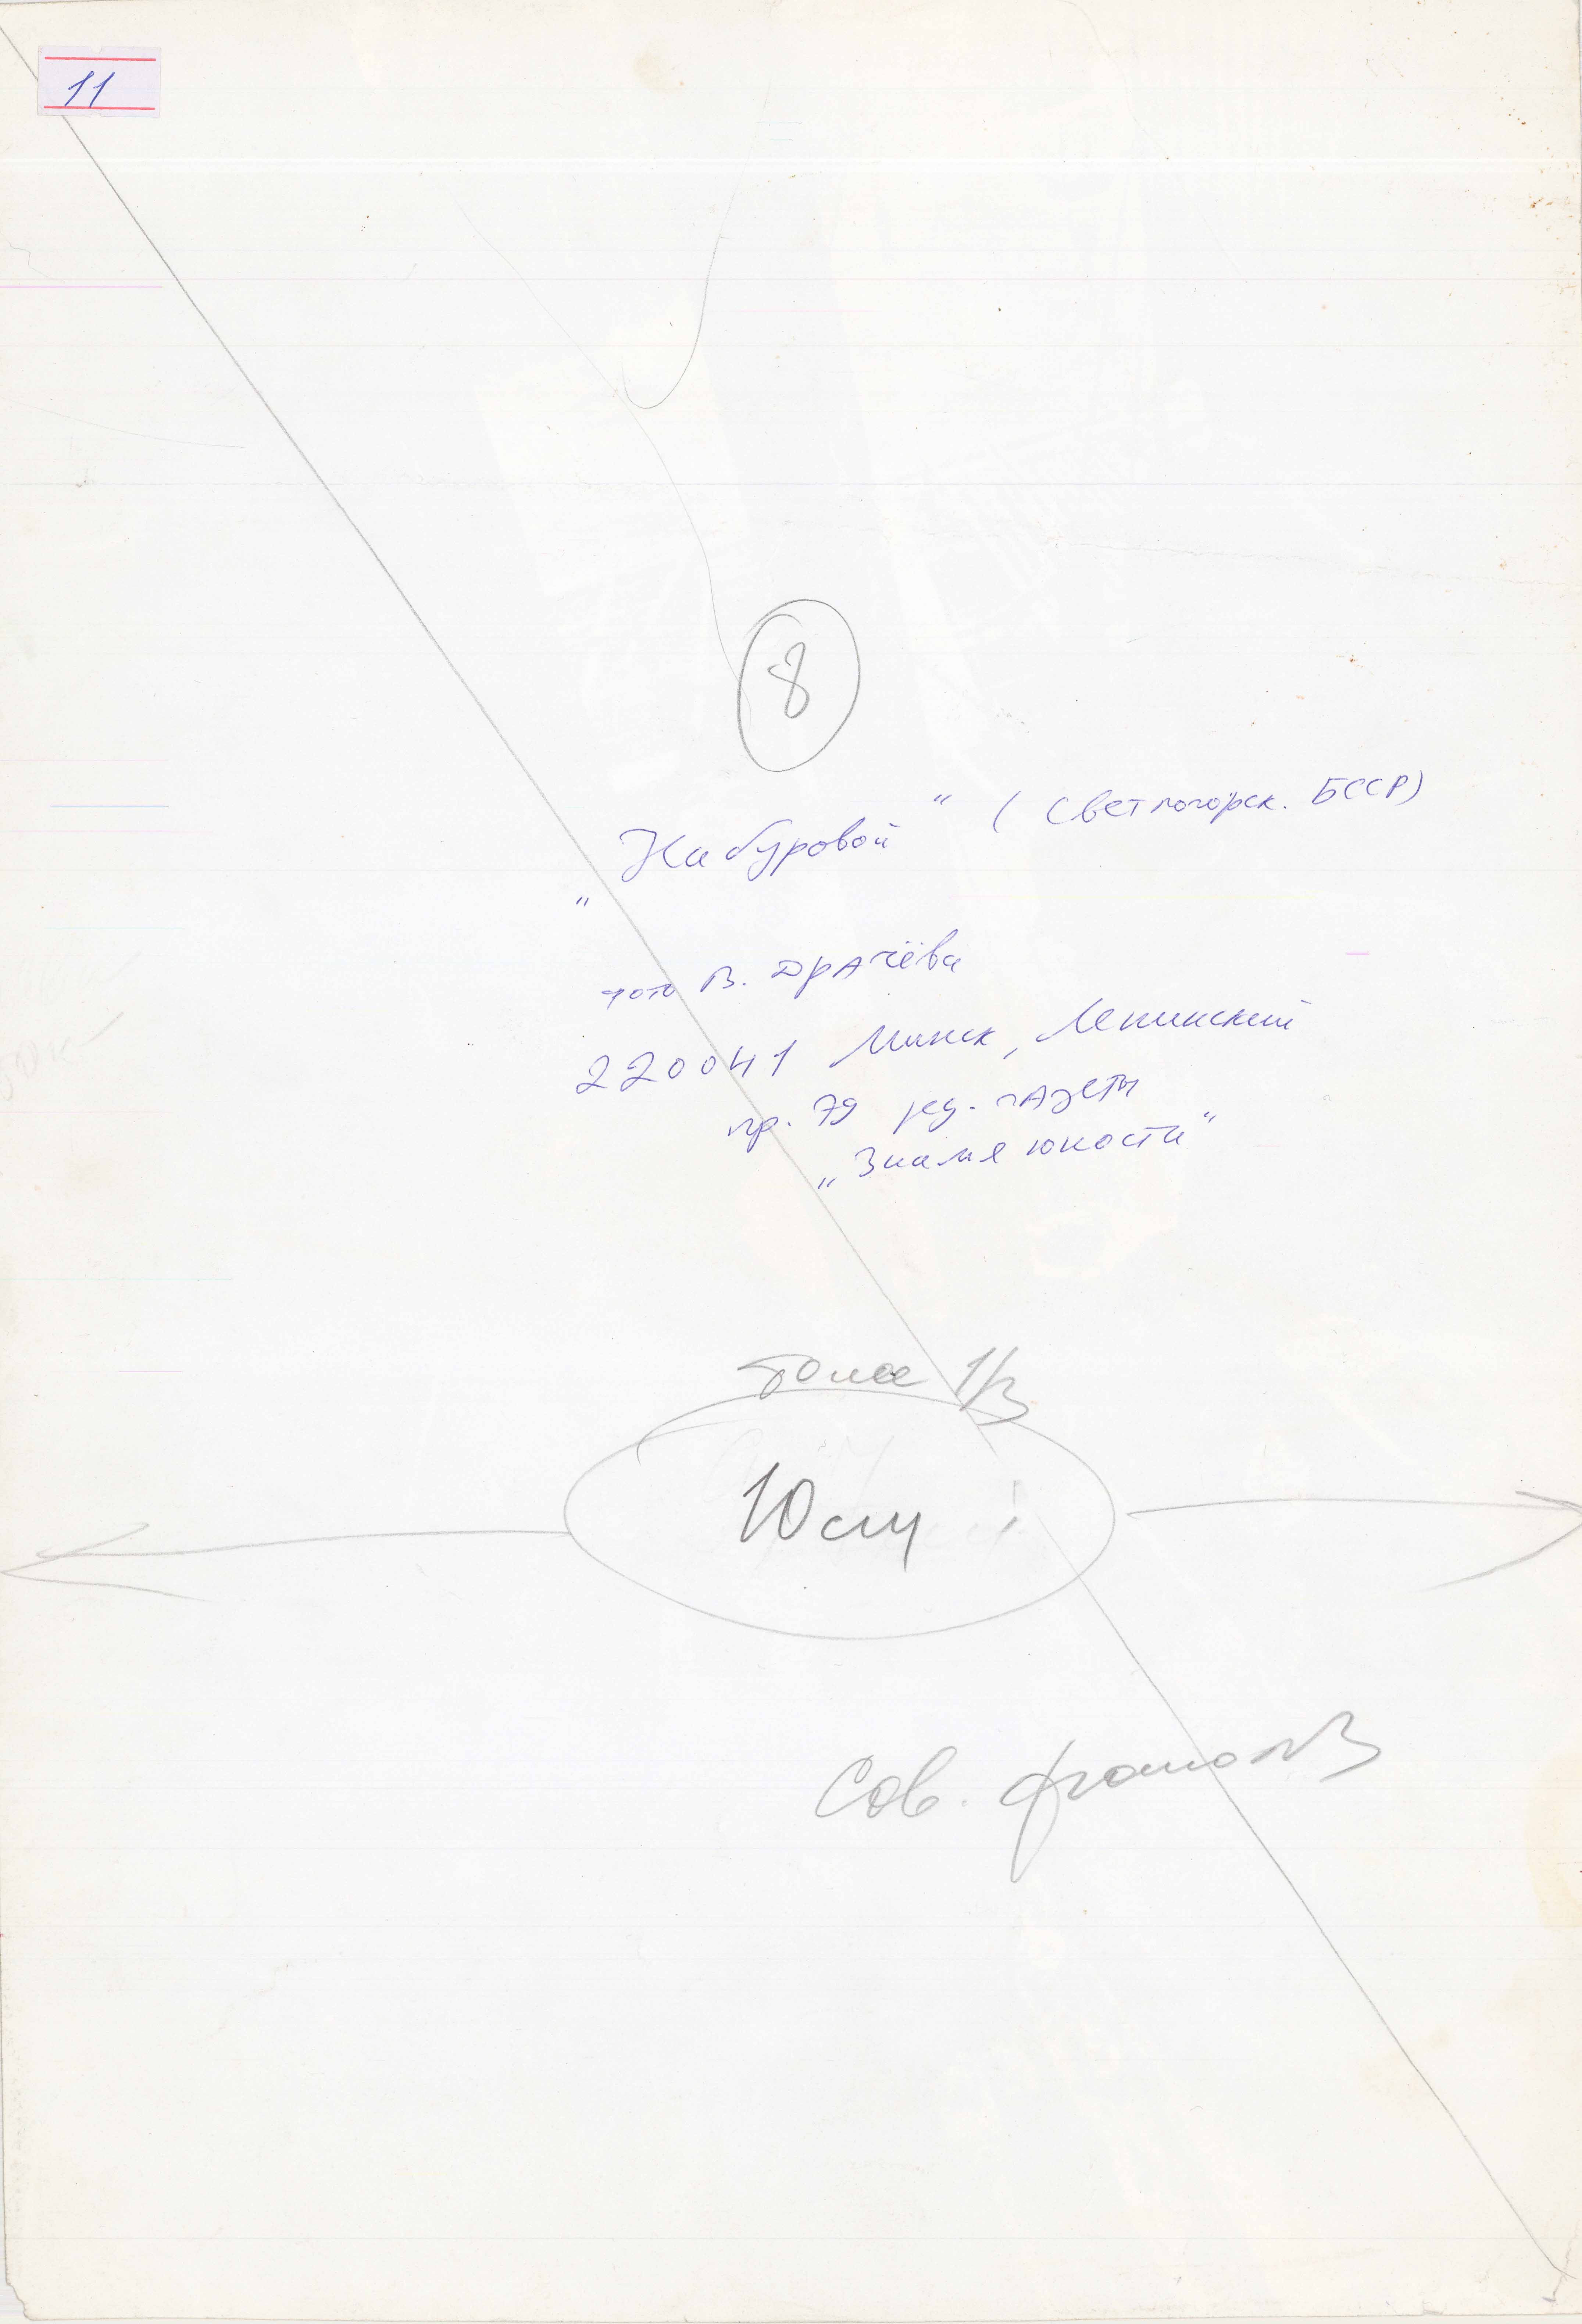 11
8
„На буровой“ (Светлогорск. БССР)
фото В. Драчёва
220041 Минск, Ленинский
пр. 79 ред. газеты
„Знамя юности“
1/3
10 см
Сов. фото